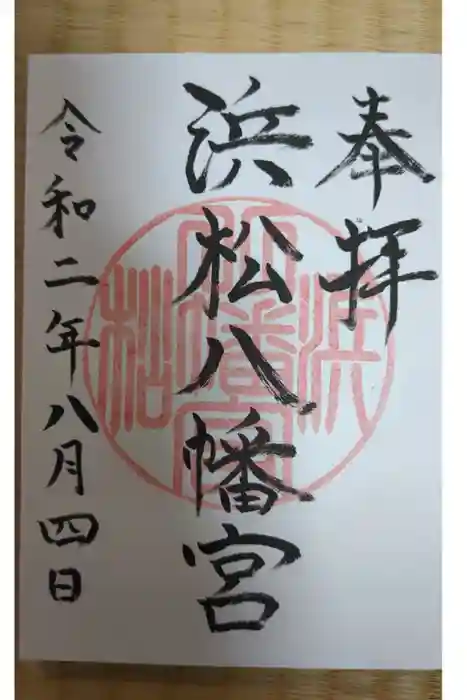 奉拝
浜松八幡宮
令和二年八月四日
浜松八幡宮